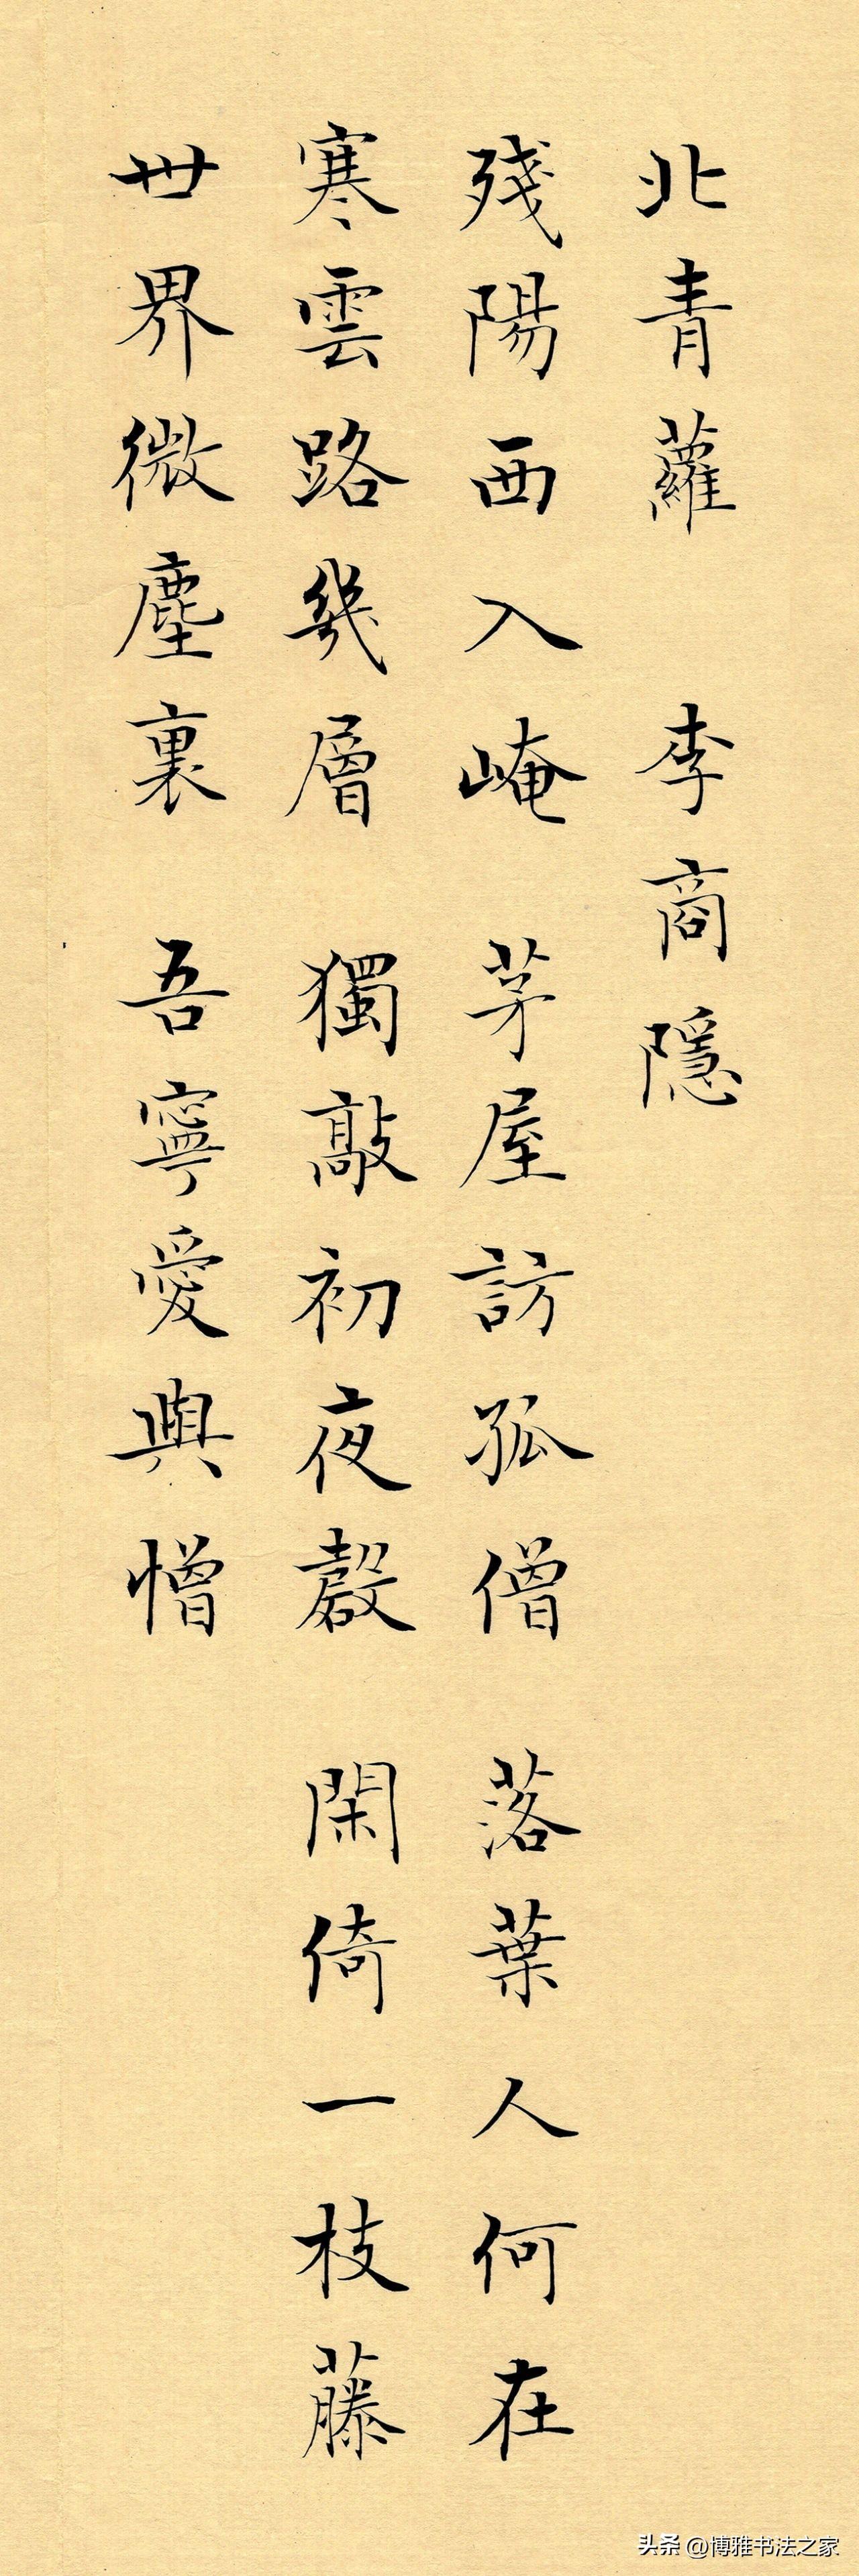 北青蘿 李商隱
殘陽西入崦 茅屋訪孤僧 落葉人何在
寒雲路幾層 獨敲初夜磬 閑倚一枝藤
世界微塵裏 吾寧愛與憎
头条 @博雅书法之家